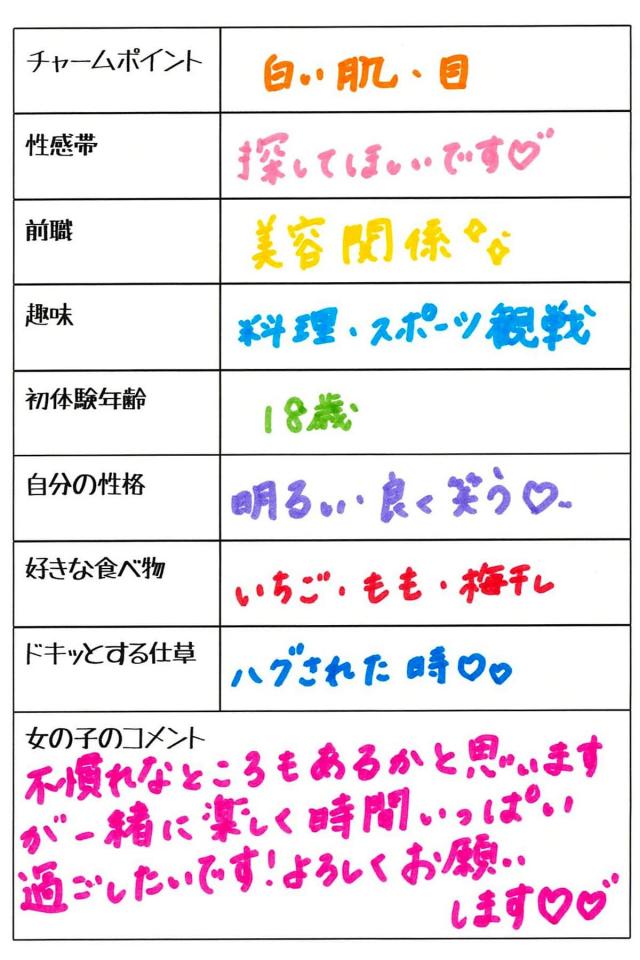 チャームポイント 白い肌、目
性感帯 探してほしいです♡
前職 美容関係
趣味 料理・スポーツ観戦
初体験年齢 18歳
自分の性格 明るい・良く笑う♡
好きな食べ物 いちご・もも・梅干し
ドキッとする仕草 ハグされた時♡♡
女の子のコメント
不慣れなところもあるかと思います
が一緒に楽しく時間いっぱい
過ごしたいです!よろしくお願い
します♡♡